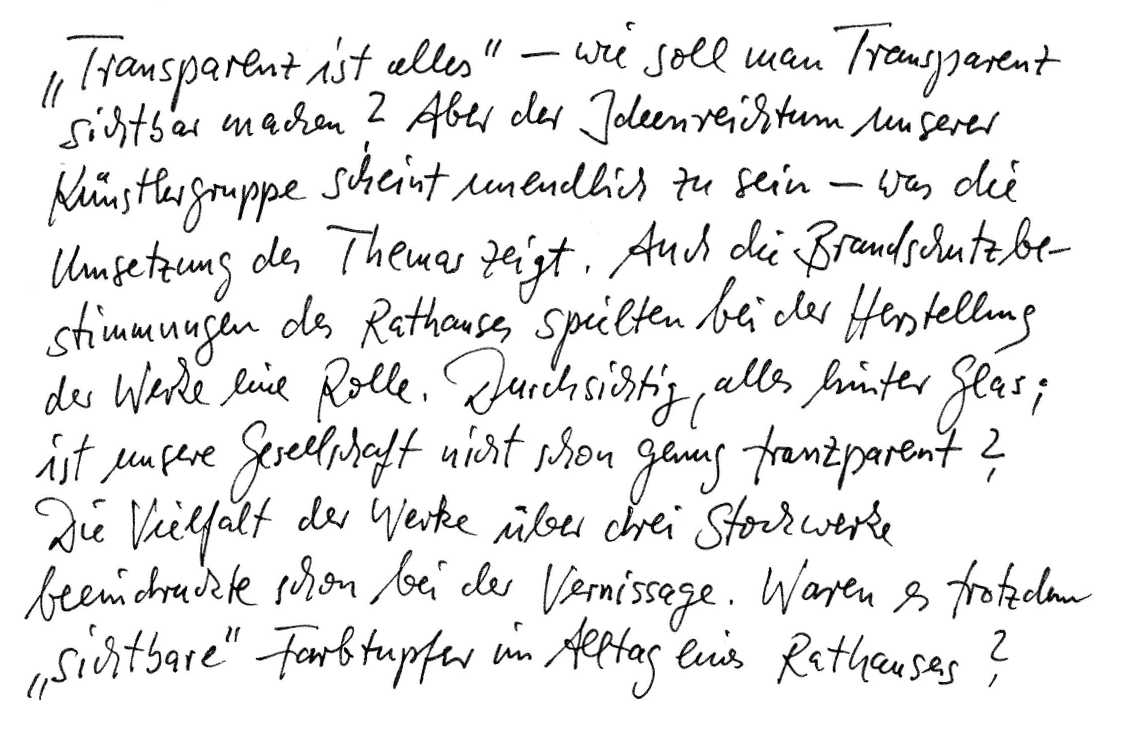 „Transparent ist alles" – wie soll man Transparent
sichtbar machen? Aber der Ideenreichtum unserer
Künstlergruppe scheint unendlich zu sein – was die
Umsetzung des Themas zeigt. Auch die Brandschutzbe-
stimmungen des Rathauses spielten bei der Herstellung
der Werke eine Rolle. Durchsichtig, alles hinter Glas;
ist unsere Gesellschaft nicht schon genug tranzparent?
Die Vielfalt der Werke über drei Stockwerke
beeindruckte schon bei der Vernissage. Waren es trotzdem
„sichtbare" Farbtupfer im Alltag eines Rathauses?